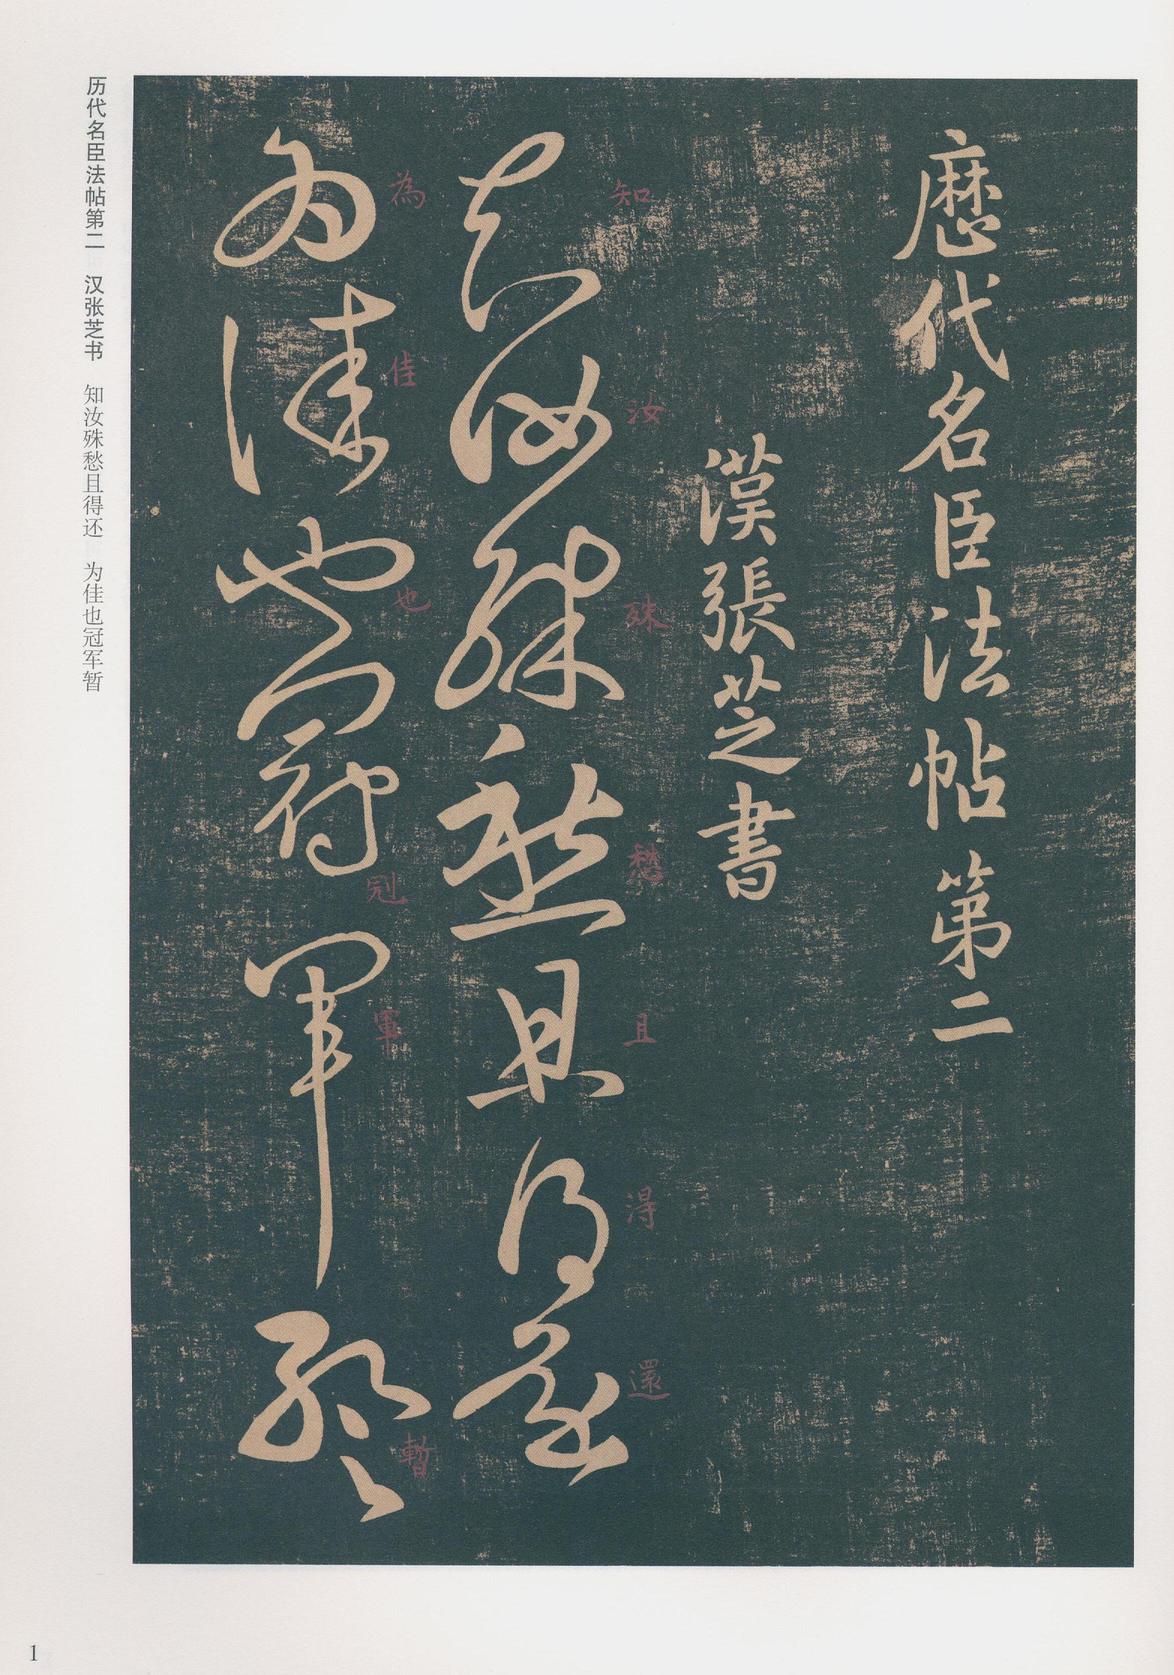 歷代名臣法帖第二
漢張芝書
知汝殊愁且得還
為佳也冠軍暫
知汝殊愁且淂還
為佳也冠軍暫
历代名臣法帖第二 汉张芝书 知汝殊愁且得还 为佳也冠军暂
1